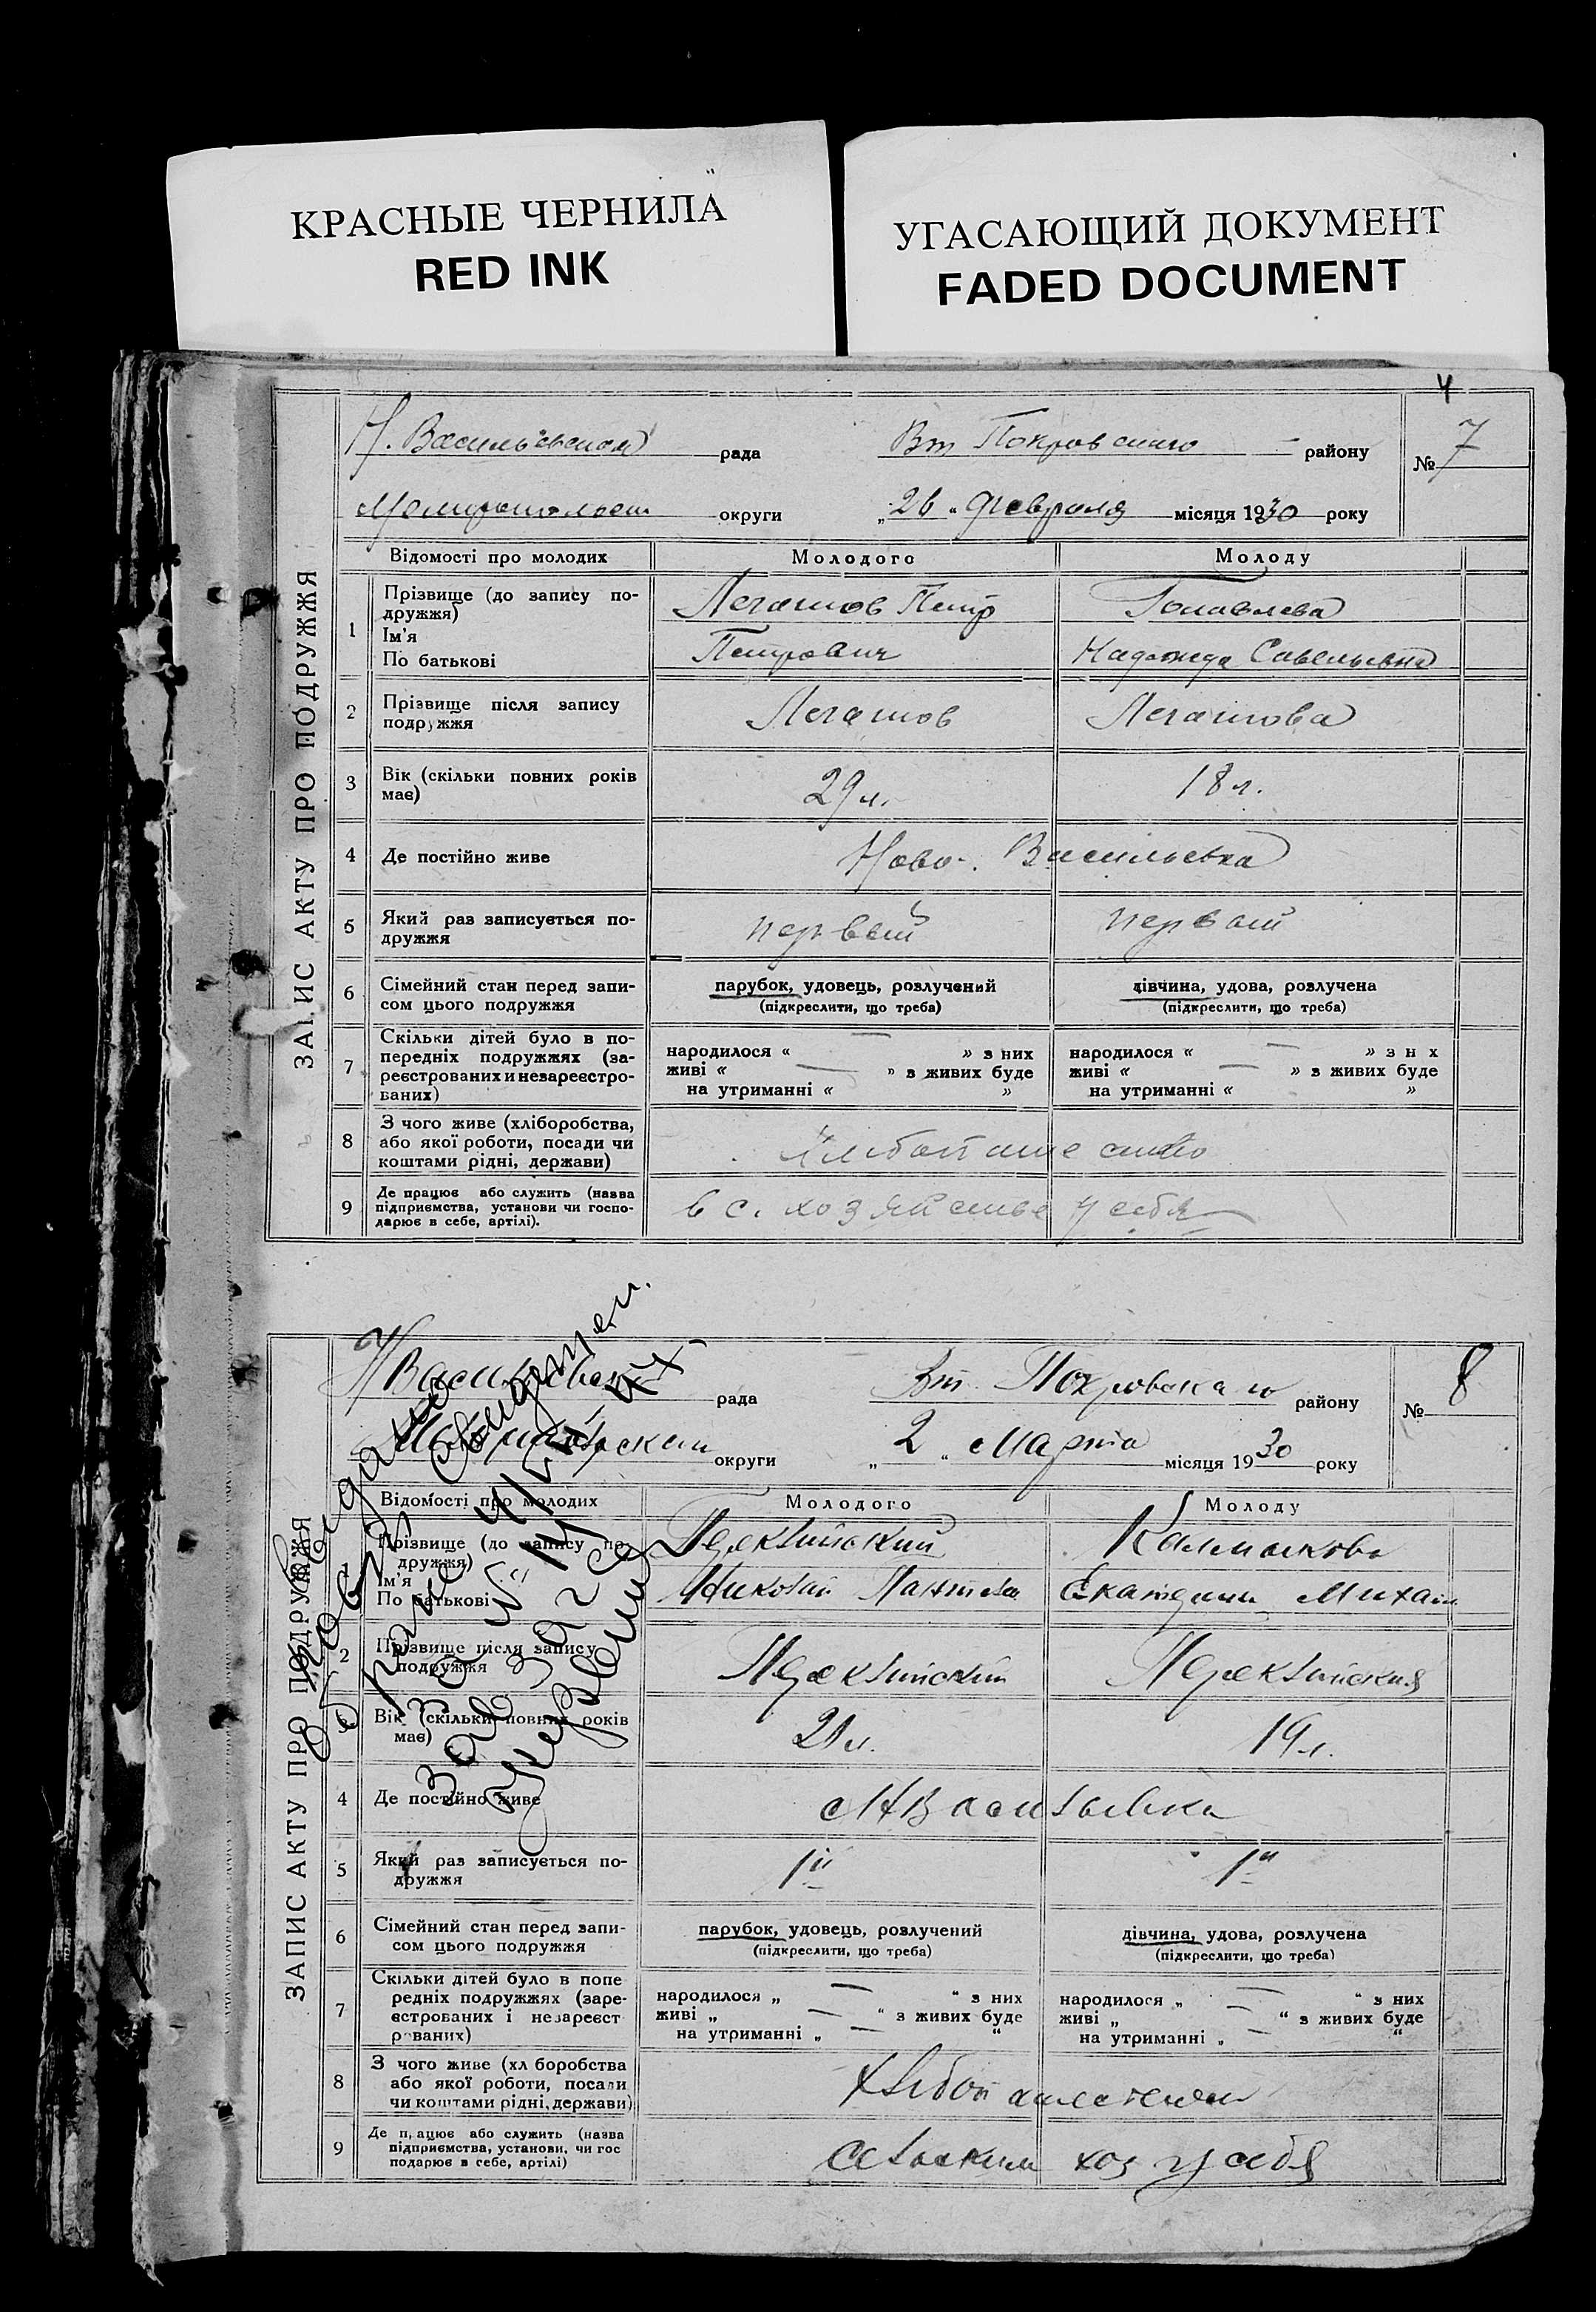 КРАСНЫЕ ЧЕРНИЛА
RED INK
УГАСАЮЩИЙ ДОКУМЕНТ
FADED DOCUMENT
4
ЗАПИС АКТУ ПРО ПОДРУЖЖЯ
Н. Васильевской рада Вт Покровского району № 7
округи „26“ Февраля місяця 1930 року
Відомості про молодих Молодого Молоду
1 Прізвище (до запису по-
дружжя)
Ім'я
По батькові
Петр
Петрович
Надежда Савельевна
2 Прізвище після запису
подружжя
3 Вік (скільки повних років
має)
29 л. 18 л.
4 Де постійно живе Ново-. Васильевка
5 Який раз записується по-
дружжя
первый первый
6 Сімейний стан перед запи-
сом цього подружжя
парубок, удовець, розлучений
(підкреслити, що треба)
дівчина, удова, розлучена
(підкреслити, що треба)
7 Скільки дітей було в по-
передніх подружжях (за-
реєстрованих и незареєстро-
ваних)
народилося « — » з них
живі « — » з живих буде
на утриманні « »
народилося « — » з н х
живі « — » з живих буде
на утриманні « »
8 З чого живе (хліборобства,
або якої роботи, посади чи
коштами рідні, держави)
9 Де працює або служить (назва
підприємства, установи чи госпо-
дарює в себе, артілі).
в с. хозяйстве у себя
ЗАПИС АКТУ ПРО ПОДРУЖЖЯ
НВасильевской рада Вт. Покровского району № 8
округи „2“ Марта місяця 1930 року
Відомості про молодих Молодого Молоду
1 Прізвище (до запису по-
дружжя)
Ім'я
По батькові
Николай
Калмыкова
Екатерина Михайл
2 Прізвище після запису
подружжя
3 Вік (скільки повних років
має)
19 л.
4 Де постійно живе НВасильевка
5 Який раз записується по-
дружжя
1й 1й
6 Сімейний стан перед запи-
сом цього подружжя
парубок, удовець, розлучений
(підкреслити, що треба)
дівчина, удова, розлучена
(підкреслити, що треба)
7 Скільки дітей було в попе
редніх подружжях (заре-
єстрованих і незареєст
рованих)
народилося „ — “ з них
живі „ — “ з живих буде
на утриманні „ — “
народилося „ — “ з них
живі „ — “ з живих буде
на утриманні „ — “
8 З чого живе (хл боробства
або якої роботи, посади
чи коштами рідні, держави)
9 Де працює або служить (назва
підприємства, установи, чи гос
подарює в себе, артілі)
сельским хоз у себя